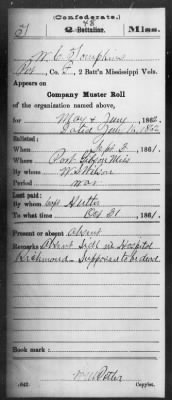 (Confederate.)
48
T 2 Battalion. Miss.
W. C. Tompkins
Pvt, Co. F, 2 Batt'n Mississippi Vols.
Appears on
Company Muster Roll
of the organization named above,
for May & June, 1862.
dated June 16 1862
Enlisted:
When Sept 2, 1861.
Where Port Gibson Miss
By whom W. S. Wilson
Period war
Last paid:
By whom Capt
To what time Oct 31, 1861.
Present or absent Absent
Remarks: Absent Sick in Hospital
Richmond - Supposed to be dead
Book mark:
(642) Copyist.